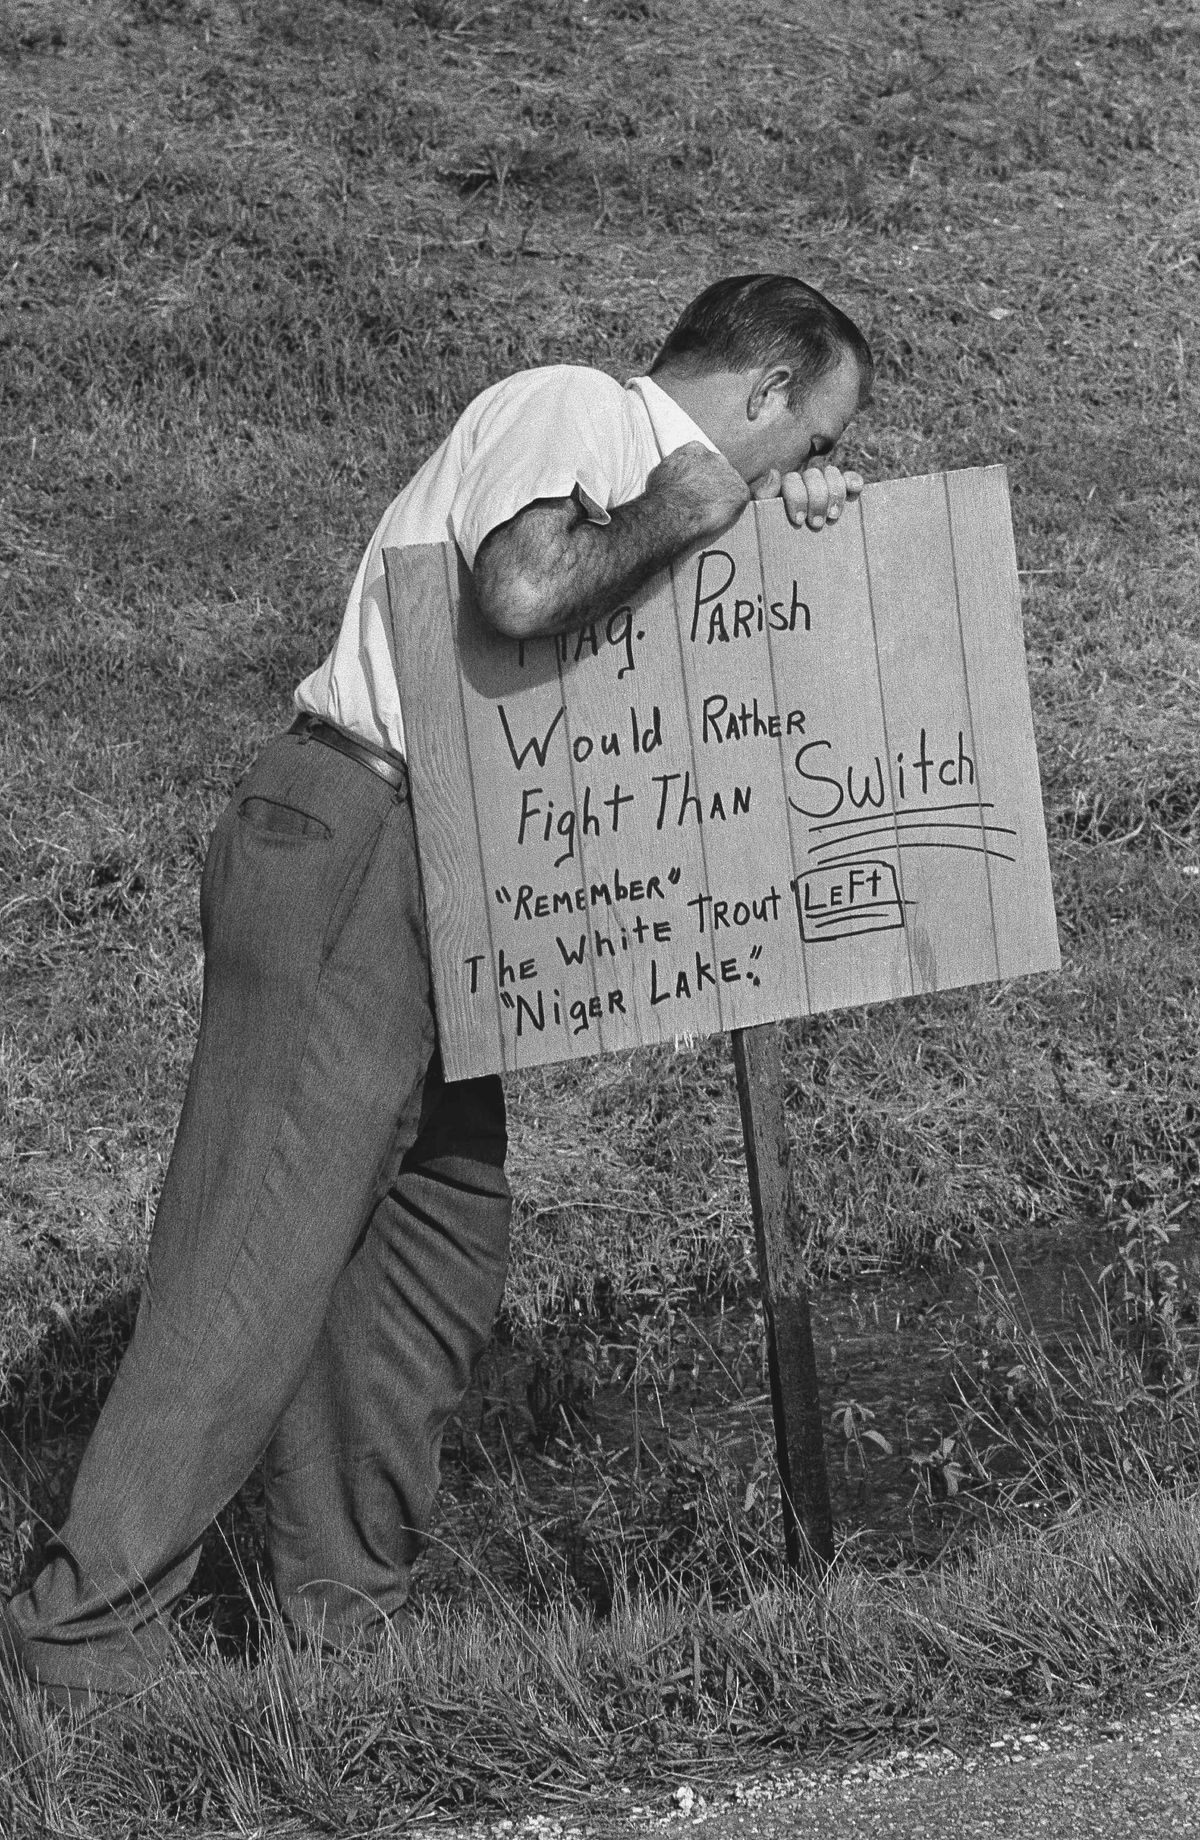 Mag. Parish
Would Rather
Fight Than Switch
"Remember"
The White Trout LEFT
"Niger Lake."